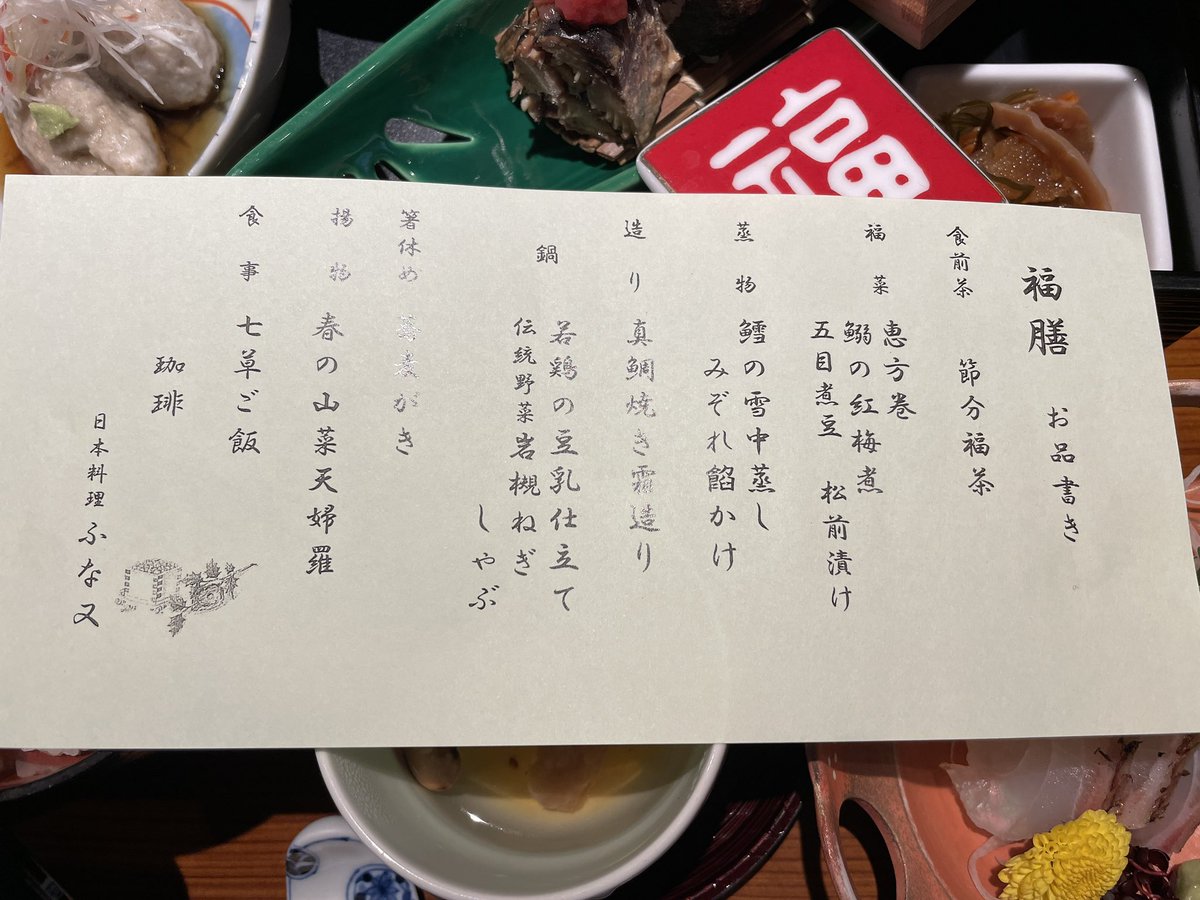 福膳 お品書き
食前茶 節分福茶
福菜 恵方巻
鰯の紅梅煮
五目煮豆 松前漬け
蒸物 鱈の雪中蒸し
みぞれ餡かけ
造り 真鯛焼き霜造り
鍋 若鶏の豆乳仕立て
伝統野菜 岩槻ねぎ
しゃぶ
箸休め 蕎麦がき
揚物 春の山菜天婦羅
食事 七草ご飯
珈琲
日本料理 ふな又
福